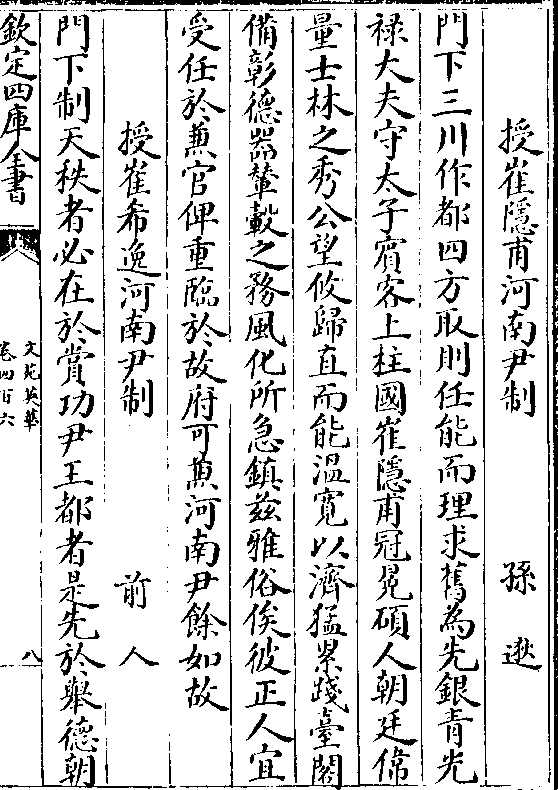 授崔隱甫河南尹制 孫逖
門下三川作都四方取則任能而理求舊為先銀青光
祿大夫守太子賓客上柱國崔隱甫冠冕碩人朝廷偉
量士林之秀公望攸歸直而能溫寬以濟猛累踐臺閣
備彰德器輦轂之務風化所急鎮茲雅俗俟彼正人宜
受任於兼官俾重臨於故府可兼河南尹餘如故
授崔希逸河南尹制 前人
門下制天秩者必在於賞功尹王都者是先於舉德朝
欽定四庫全書
文苑英華
卷四百六
八